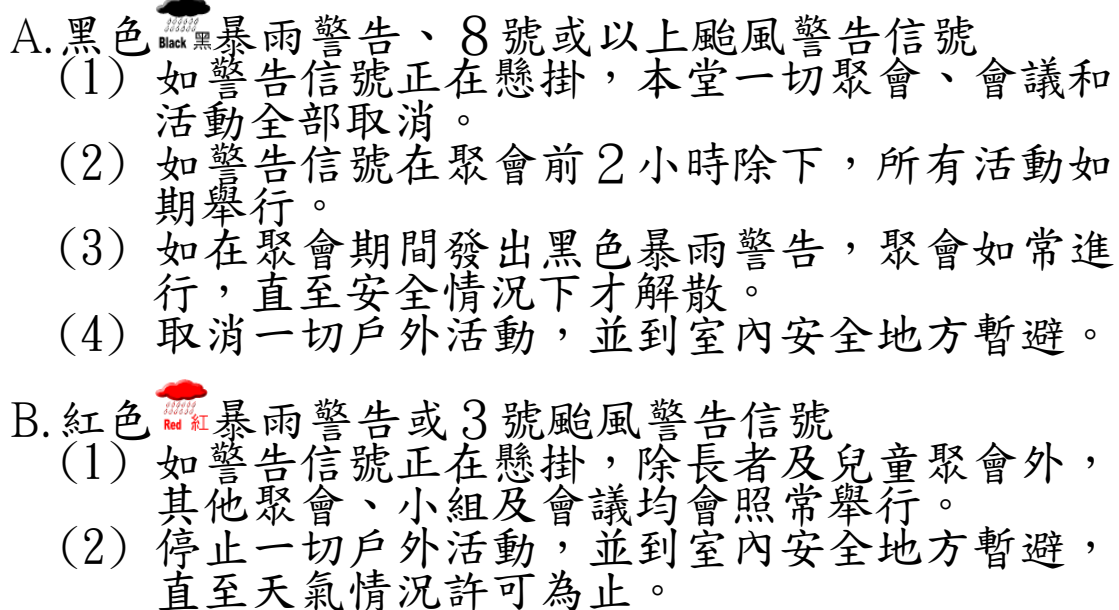 A.黑色Black 黑暴雨警告、8號或以上颱風警告信號
(1) 如警告信號正在懸掛,本堂一切聚會、會議和
活動全部取消。
(2) 如警告信號在聚會前2小時除下,所有活動如
期舉行。
(3) 如在聚會期間發出黑色暴雨警告,聚會如常進
行,直至安全情況下才解散。
(4) 取消一切戶外活動,並到室內安全地方暫避。
B.紅色Red 紅暴雨警告或3號颱風警告信號
(1) 如警告信號正在懸掛,除長者及兒童聚會外,
其他聚會、小組及會議均會照常舉行。
(2) 停止一切戶外活動,並到室內安全地方暫避,
直至天氣情況許可為止。